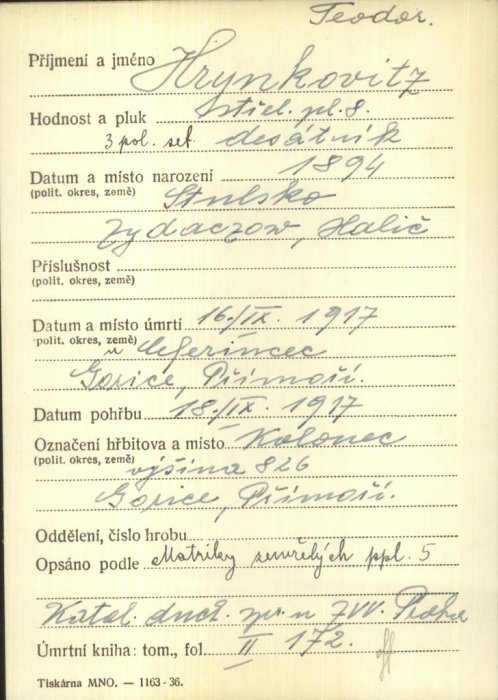 Teodor.
Příjmení a jméno Hrynkovitz
Hodnost a pluk střel. pl. 8.
3 pol. set. desátník
Datum a místo narození 1894
(polit. okres, země) Stulsko
Zydaczow, Halič
Příslušnost
(polit. okres, země)
Datum a místo úmrtí 16./IX. 1917
(polit. okres, země) u
Gorice, Přímoří.
Datum pohřbu 18./IX. 1917
Označení hřbitova a místo Kolonec
(polit. okres, země) výšina 826
Gorice, Přímoří.
Oddělení, číslo hrobu
Opsáno podle Matriky zemřelých ppl. 5
Katol. duch. zpr. u ZVV. Praha
Úmrtní kniha: tom., fol. II 172.
Tiskárna MNO. — 1163-36.